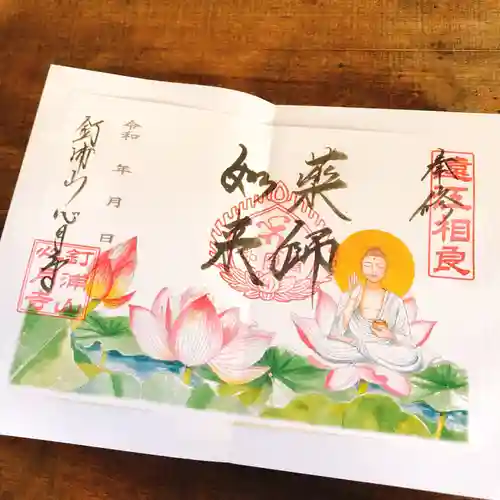 奉修
遠江相良
薬師
如来
令和 年 月 日
釘浦山 心月寺
釘浦山
心月寺